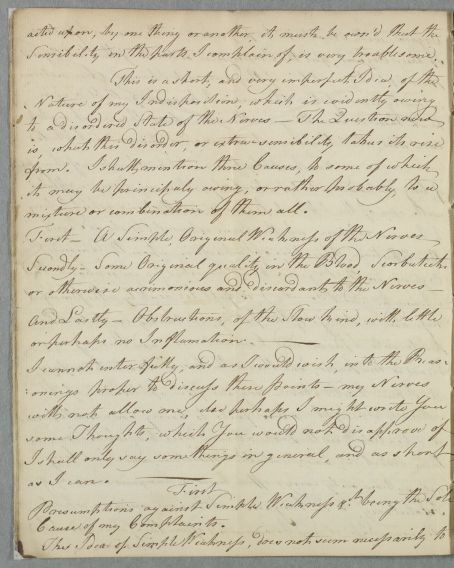 acted upon, by one thing or another, it must be own'd that the
Sensibility in the parts I complain of, is very troublesome.
This is a short, and very imperfect Idea, of the
Nature of my Indisposition, which is evidently owing
to a disordered State of the Nerves — The Question now
is, what this disorder, or extra-sensibility takes its rise
from. I shall mention three Causes, to some of which
it may be principaly owing, or rather probably, to a
mixture or combination of them all.
First — A Simple, Original Weakness of the Nerves
Secondly — Some Original quality in the Blood Scorbutick
or otherwise acrimonious and discordant to the Nerves —
And Lastly — Obstructions, of the slow kind, with little
or perhaps no Inflamation.
I cannot enter fully, and as I would wish, into the Reas-
:onings proper to discuss these points — my Nerves
will not allow me, else perhaps I might write You
some Thoughts, which You would not disapprove of
I shall only say some things in general, and as short
as I can.
First
Presumptions against Simple Weakness being the Sole
Cause of my Complaints.
The Idea of Simple Weakness, does not seem necessarily to